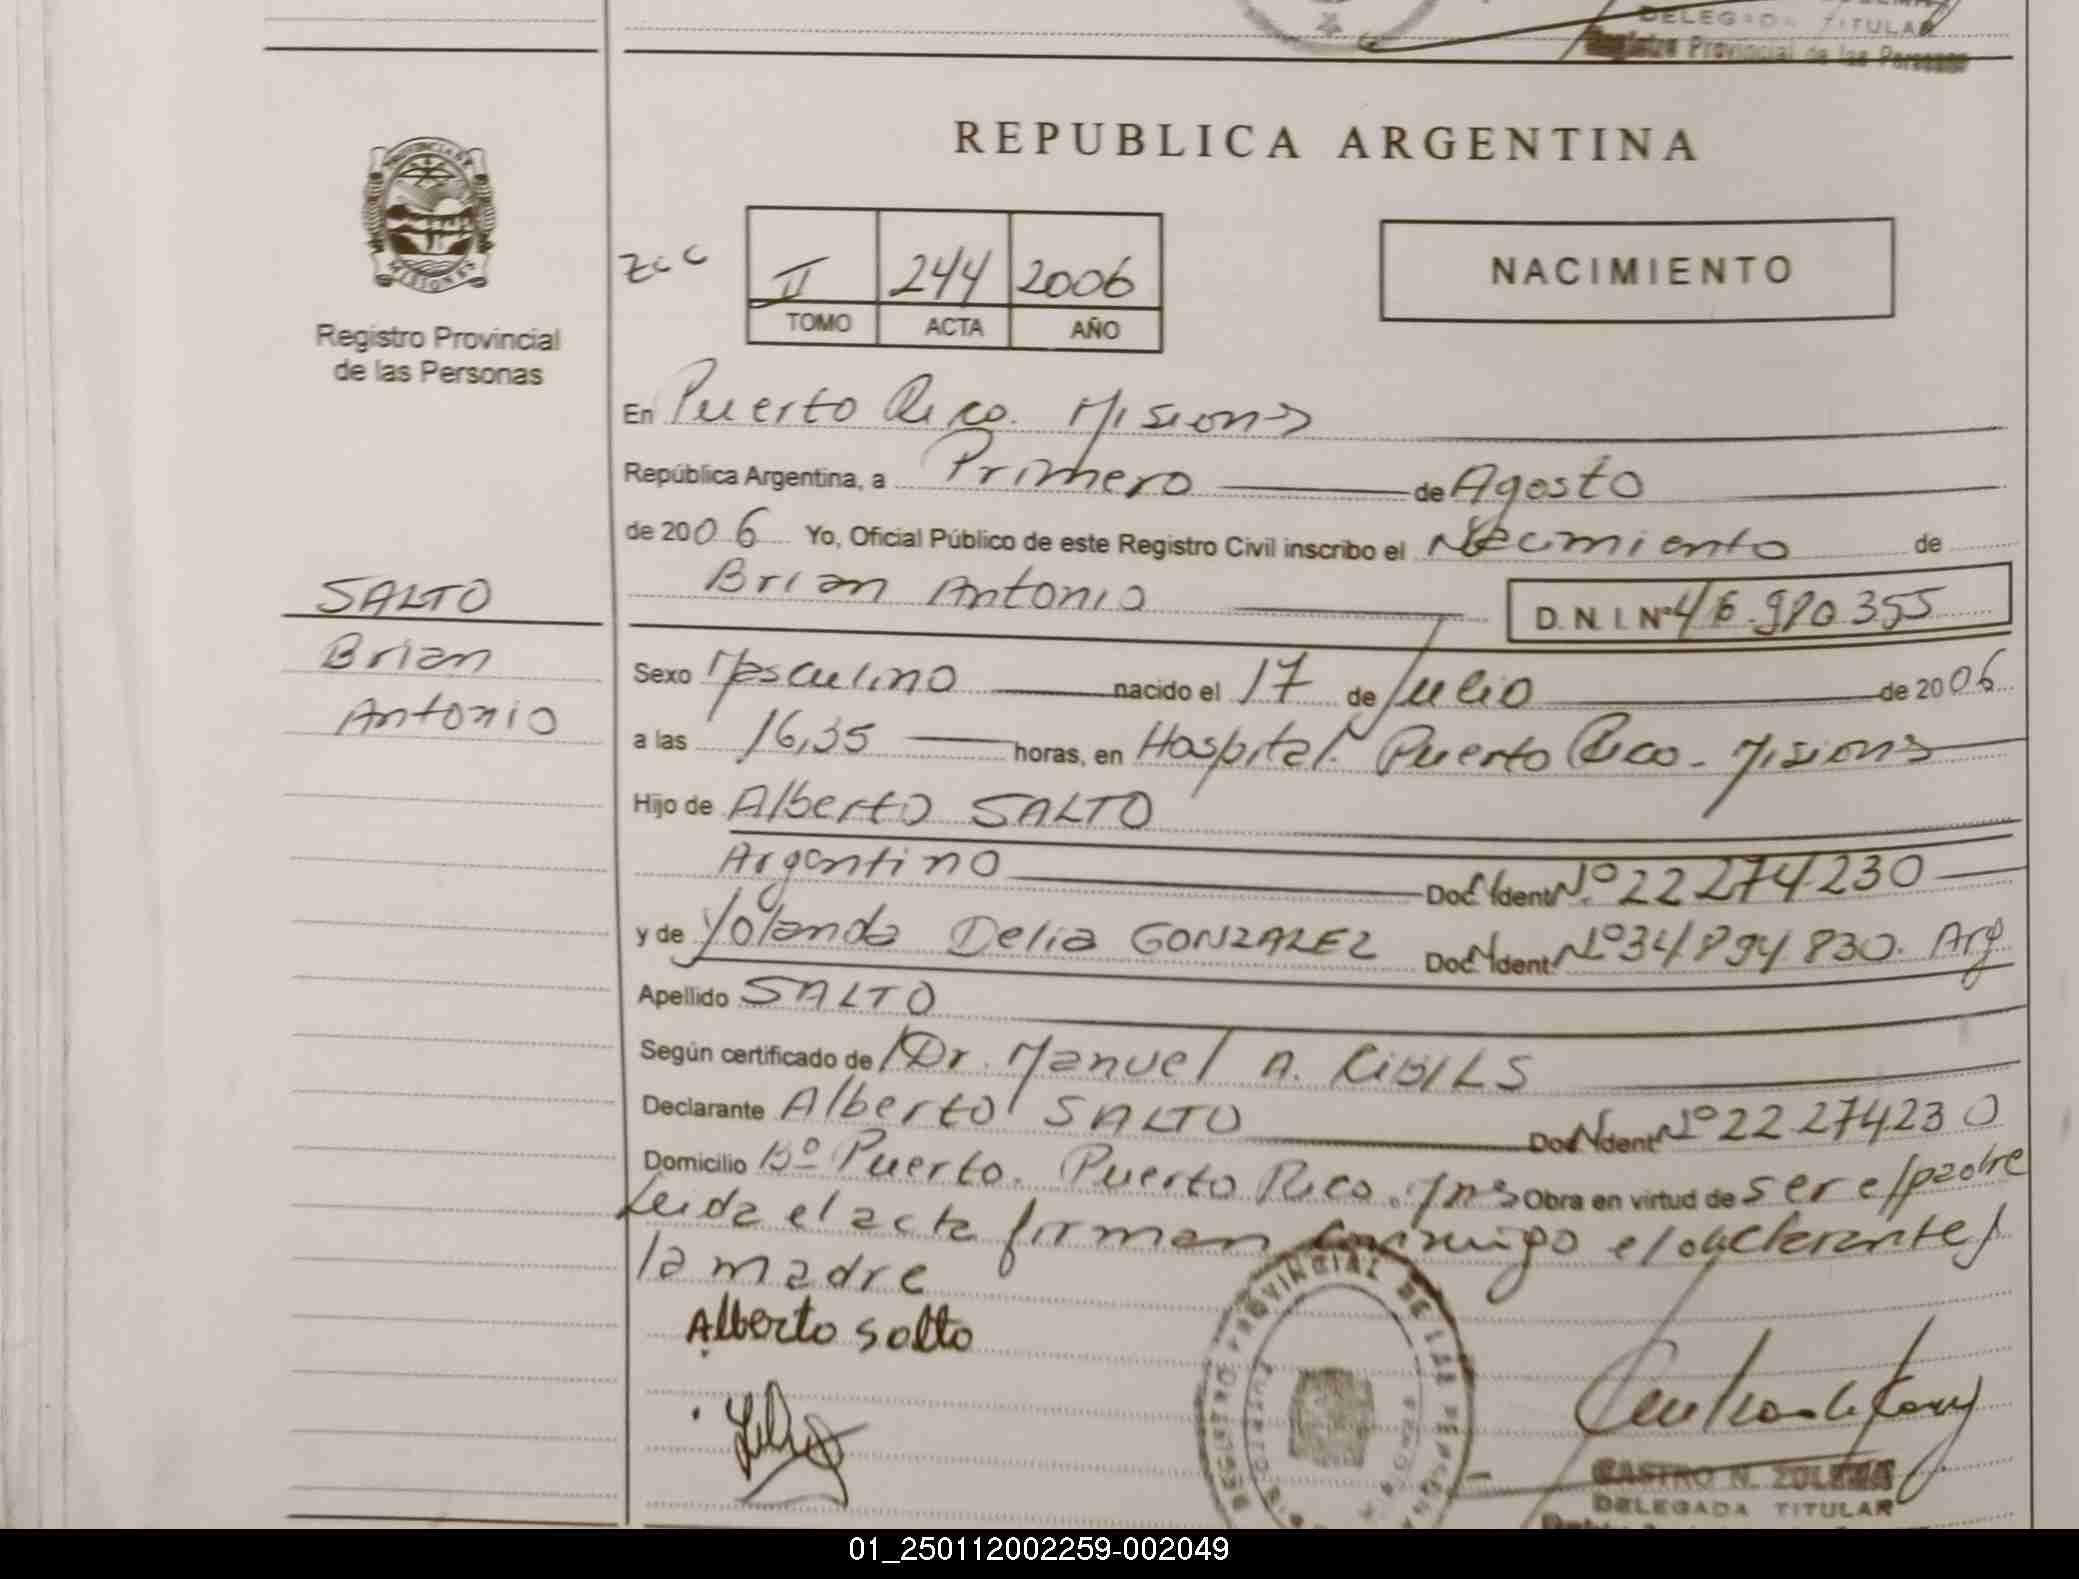 DELEGADA TITULAR
Registro Provincial de las Personas
REPUBLICA ARGENTINA
PROVINCIA DE
MISIONES
Registro Provincial
de las Personas
II 244 2006
TOMO ACTA AÑO
NACIMIENTO
En Puerto Rico. Misiones
República Argentina, a Primero de Agosto
de 2006 Yo, Oficial Público de este Registro Civil inscribo el Nacimiento de
SALTO
Brian
Antonio
Brian Antonio D.N.I. Nº 46.980.355
Sexo Masculino nacido el 17 de Julio de 2006
a las 16,35 horas, en Hospital. Puerto Rico. Misiones
Hijo de Alberto SALTO
Argentino Doc. Ident. Nº 22 274 230
y de Yolanda Delia GONZALEZ Doc. Ident. Nº 34 894 830. Arg
Apellido SALTO
Según certificado de Dr. Manuel A.
Declarante Alberto SALTO Doc. Ident. Nº 22 274230
Domicilio Bº Puerto. Puerto Rico. Mns Obra en virtud de ser el padre
Leida el acta firman conmigo el declarante y
la madre
Alberto Salto
PROVINCIAL DE LAS PERSONAS
CASTRO N. ZULEMA
DELEGADA TITULAR
01_250112002259-002049